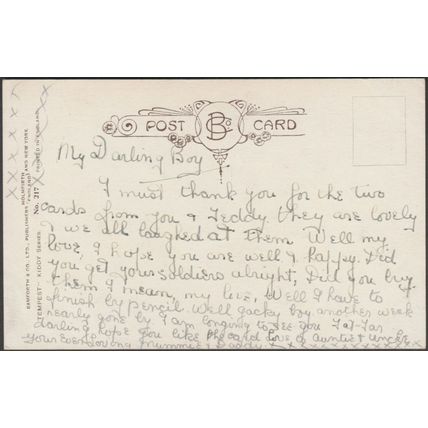 POST CARD
BAMFORTH & CO., LTD., PUBLISHERS HOLMFIRTH (ENGLAND) AND NEW YORK.
"TEMPEST" KIDDY SERIES No. 217 PRINTED IN ENGLAND
My Darling Boy
I must thank you for the two
cards from you & Teddy they are lovely
& we all laughed at them Well my
love, I hope you are well & happy. Did
you get your soldiers alright, Did you buy
them I mean, my love, Well I have to
finish by pencil. Well gacky boy another week
nearly gone by I am longing to see you Ta-Tar
darling hope you like the card love of auntie & uncle
Your Ever Loving Mummie & Daddy xxxxxxxxx